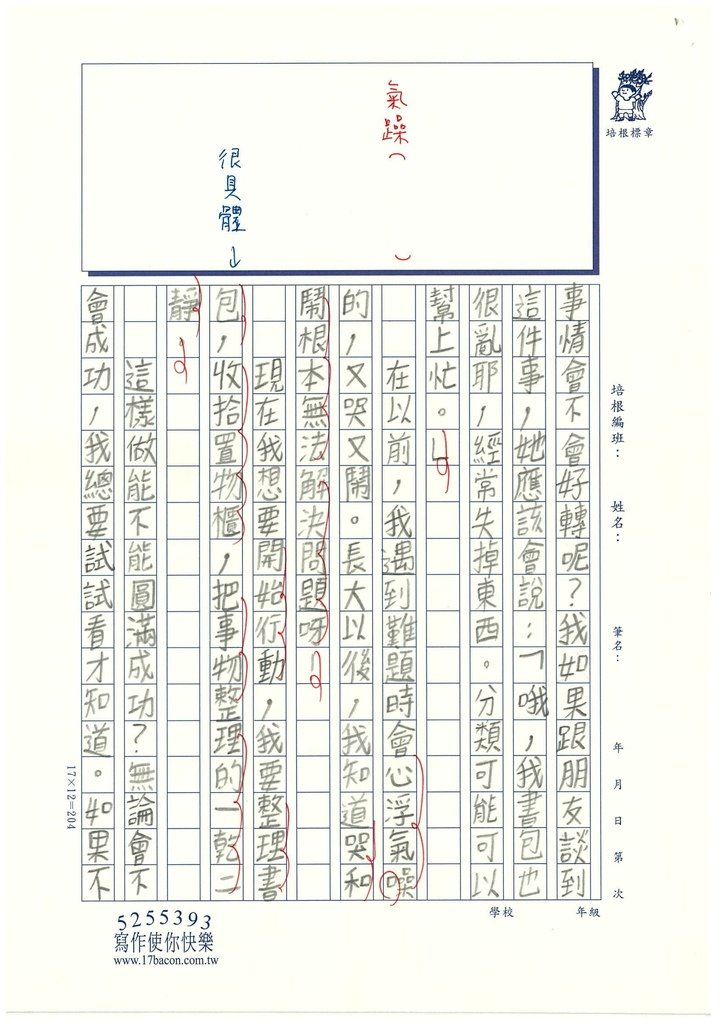 培根標章
氣躁（　）
很具體↓
培根編班：　姓名：　筆名：　年　月　日　第　次
學校　年級
事情會不會好轉呢？我如果跟朋友談到
這件事，她應該會說：「哦，我書包也
很亂耶，經常失掉東西。分類可能可以
幫上忙。」
在以前，我遇到難題時會心浮氣噪
的，又哭又鬧。長大以後，我知道哭和
鬧根本無法解決問題呀！
現在我想要開始行動，我要整理書
包，收拾置物櫃，把事物整理的一乾二
靜。
這樣做能不能圓滿成功？無論會不
會成功，我總要試試看才知道。如果不
17×12=204
5255393
寫作使你快樂
www.17bacon.com.tw